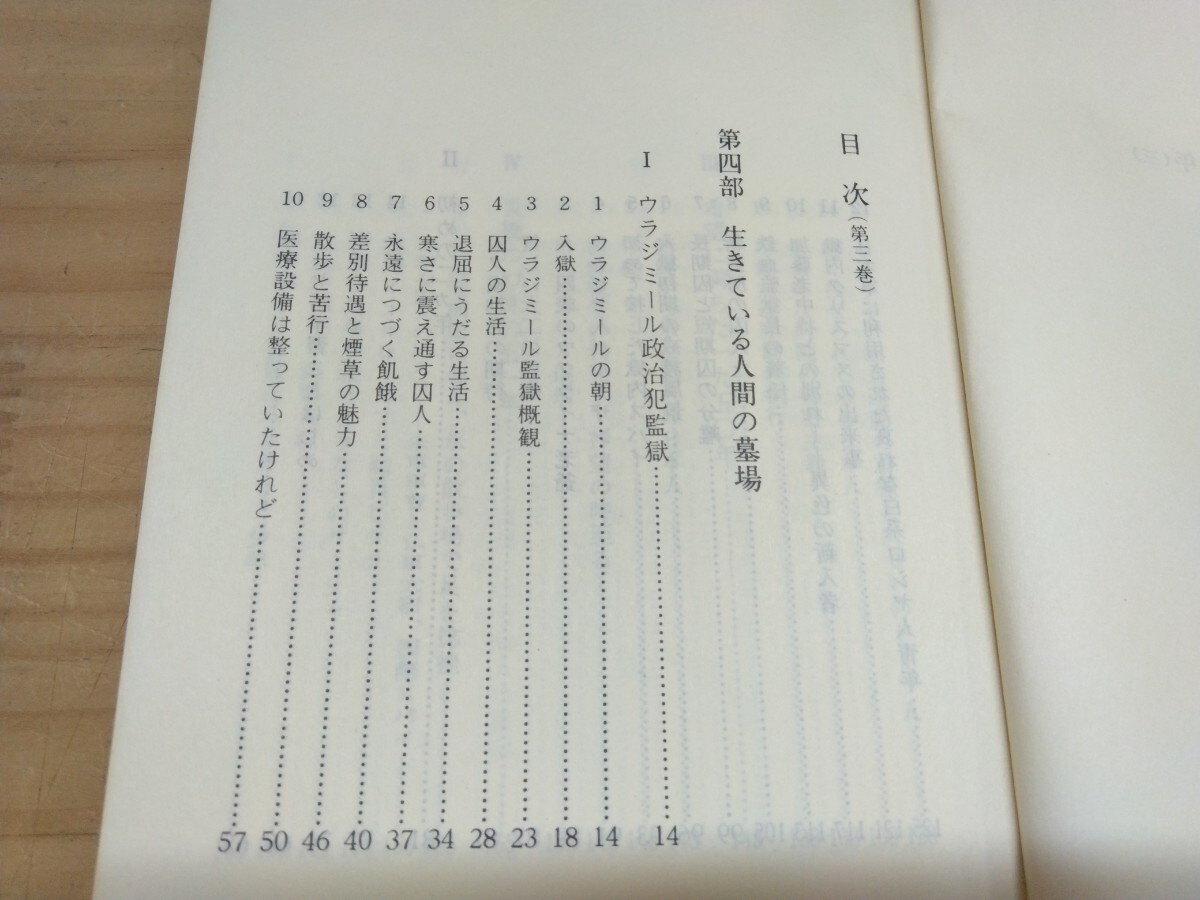 目次（第三巻）
第四部 生きている人間の墓場
Ⅰ ウラジミール政治犯監獄……14
1 ウラジミールの朝……14
2 入獄……18
3 ウラジミール監獄概観……23
4 囚人の生活……28
5 退屈にうだる生活……34
6 寒さに震え通す囚人……37
7 永遠につづく飢餓……40
8 差別待遇と煙草の魅力……46
9 散歩と苦行……50
10 医療設備は整っていたけれど……57